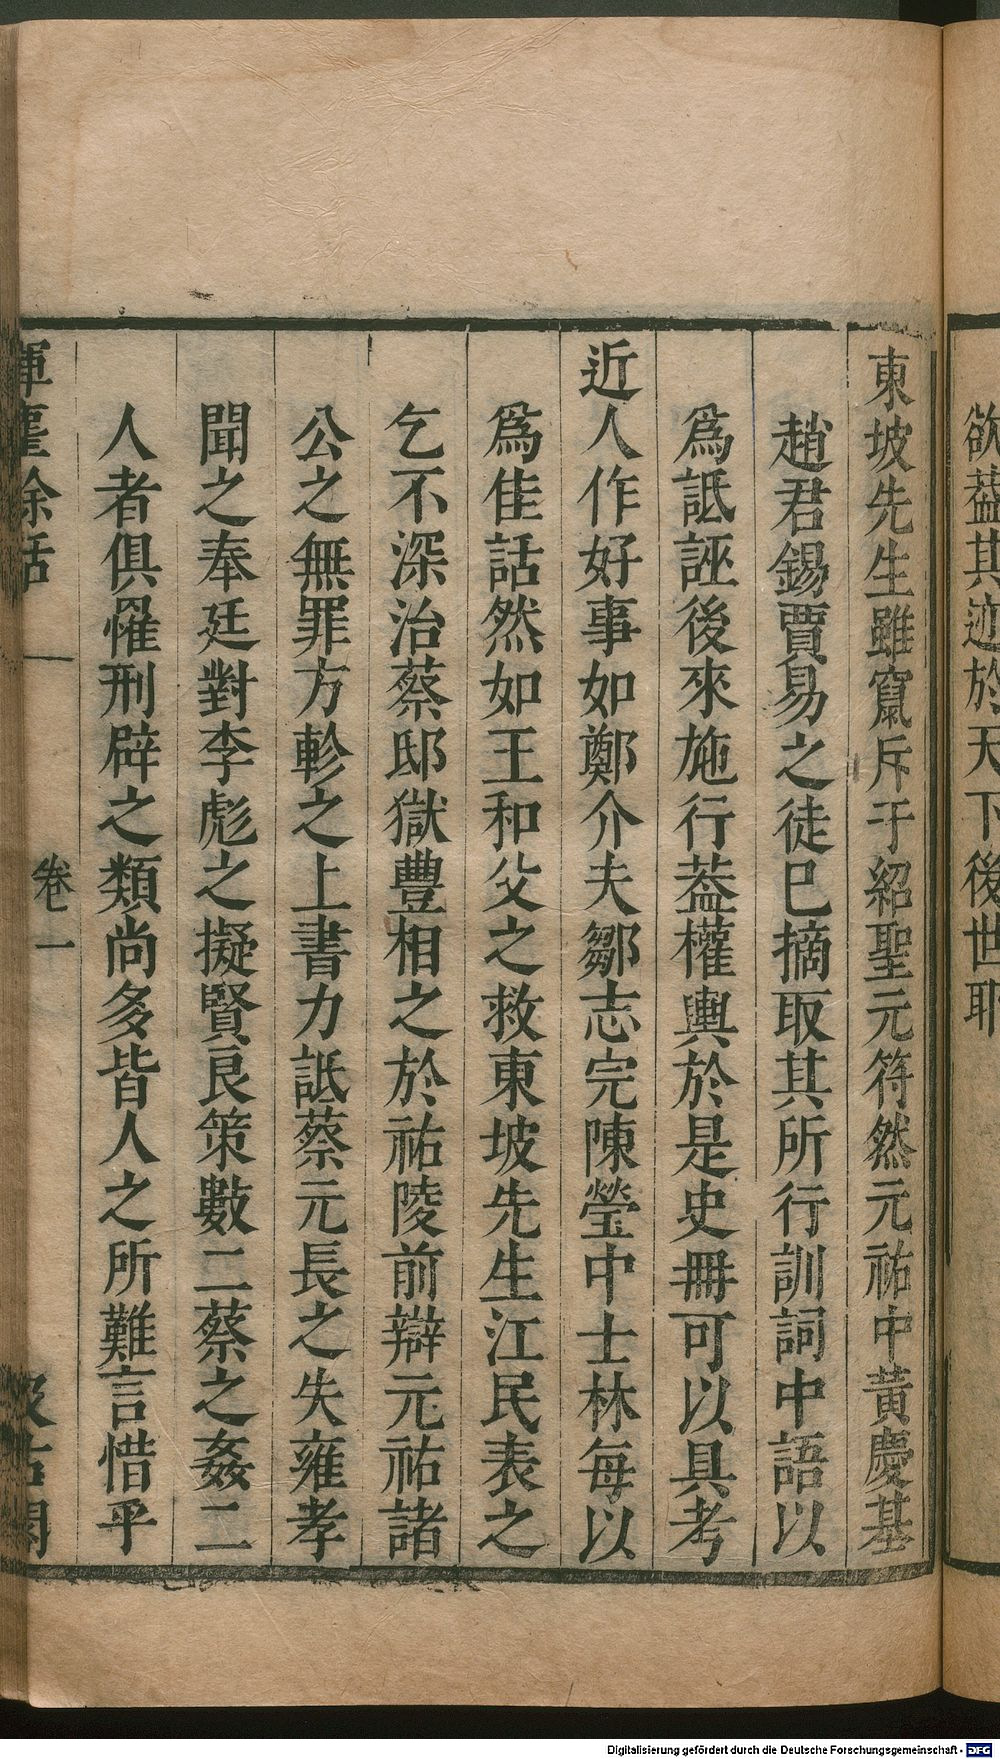 欲葢其迹於天下後世耶
東坡先生雖竄斥于紹聖元符然元祐中黃慶基
趙君錫賈易之徒巳摘取其所行訓詞中語以
爲詆誣後來施行葢權輿於是史冊可以具考
近人作好事如鄭介夫鄒志完陳瑩中士林每以
爲佳話然如王和父之救東坡先生江民表之
乞不深治蔡邸獄豐相之於祐陵前辯元祐諸
公之無罪方軫之上書力詆蔡元長之失雍孝
聞之奉廷對李彪之擬賢良策數二蔡之姦二
人者俱罹刑辟之類尚多皆人之所難言惜乎
揮麈餘話
卷一
汲古閣
Digitalisierung gefördert durch die Deutsche Forschungsgemeinschaft - DFG